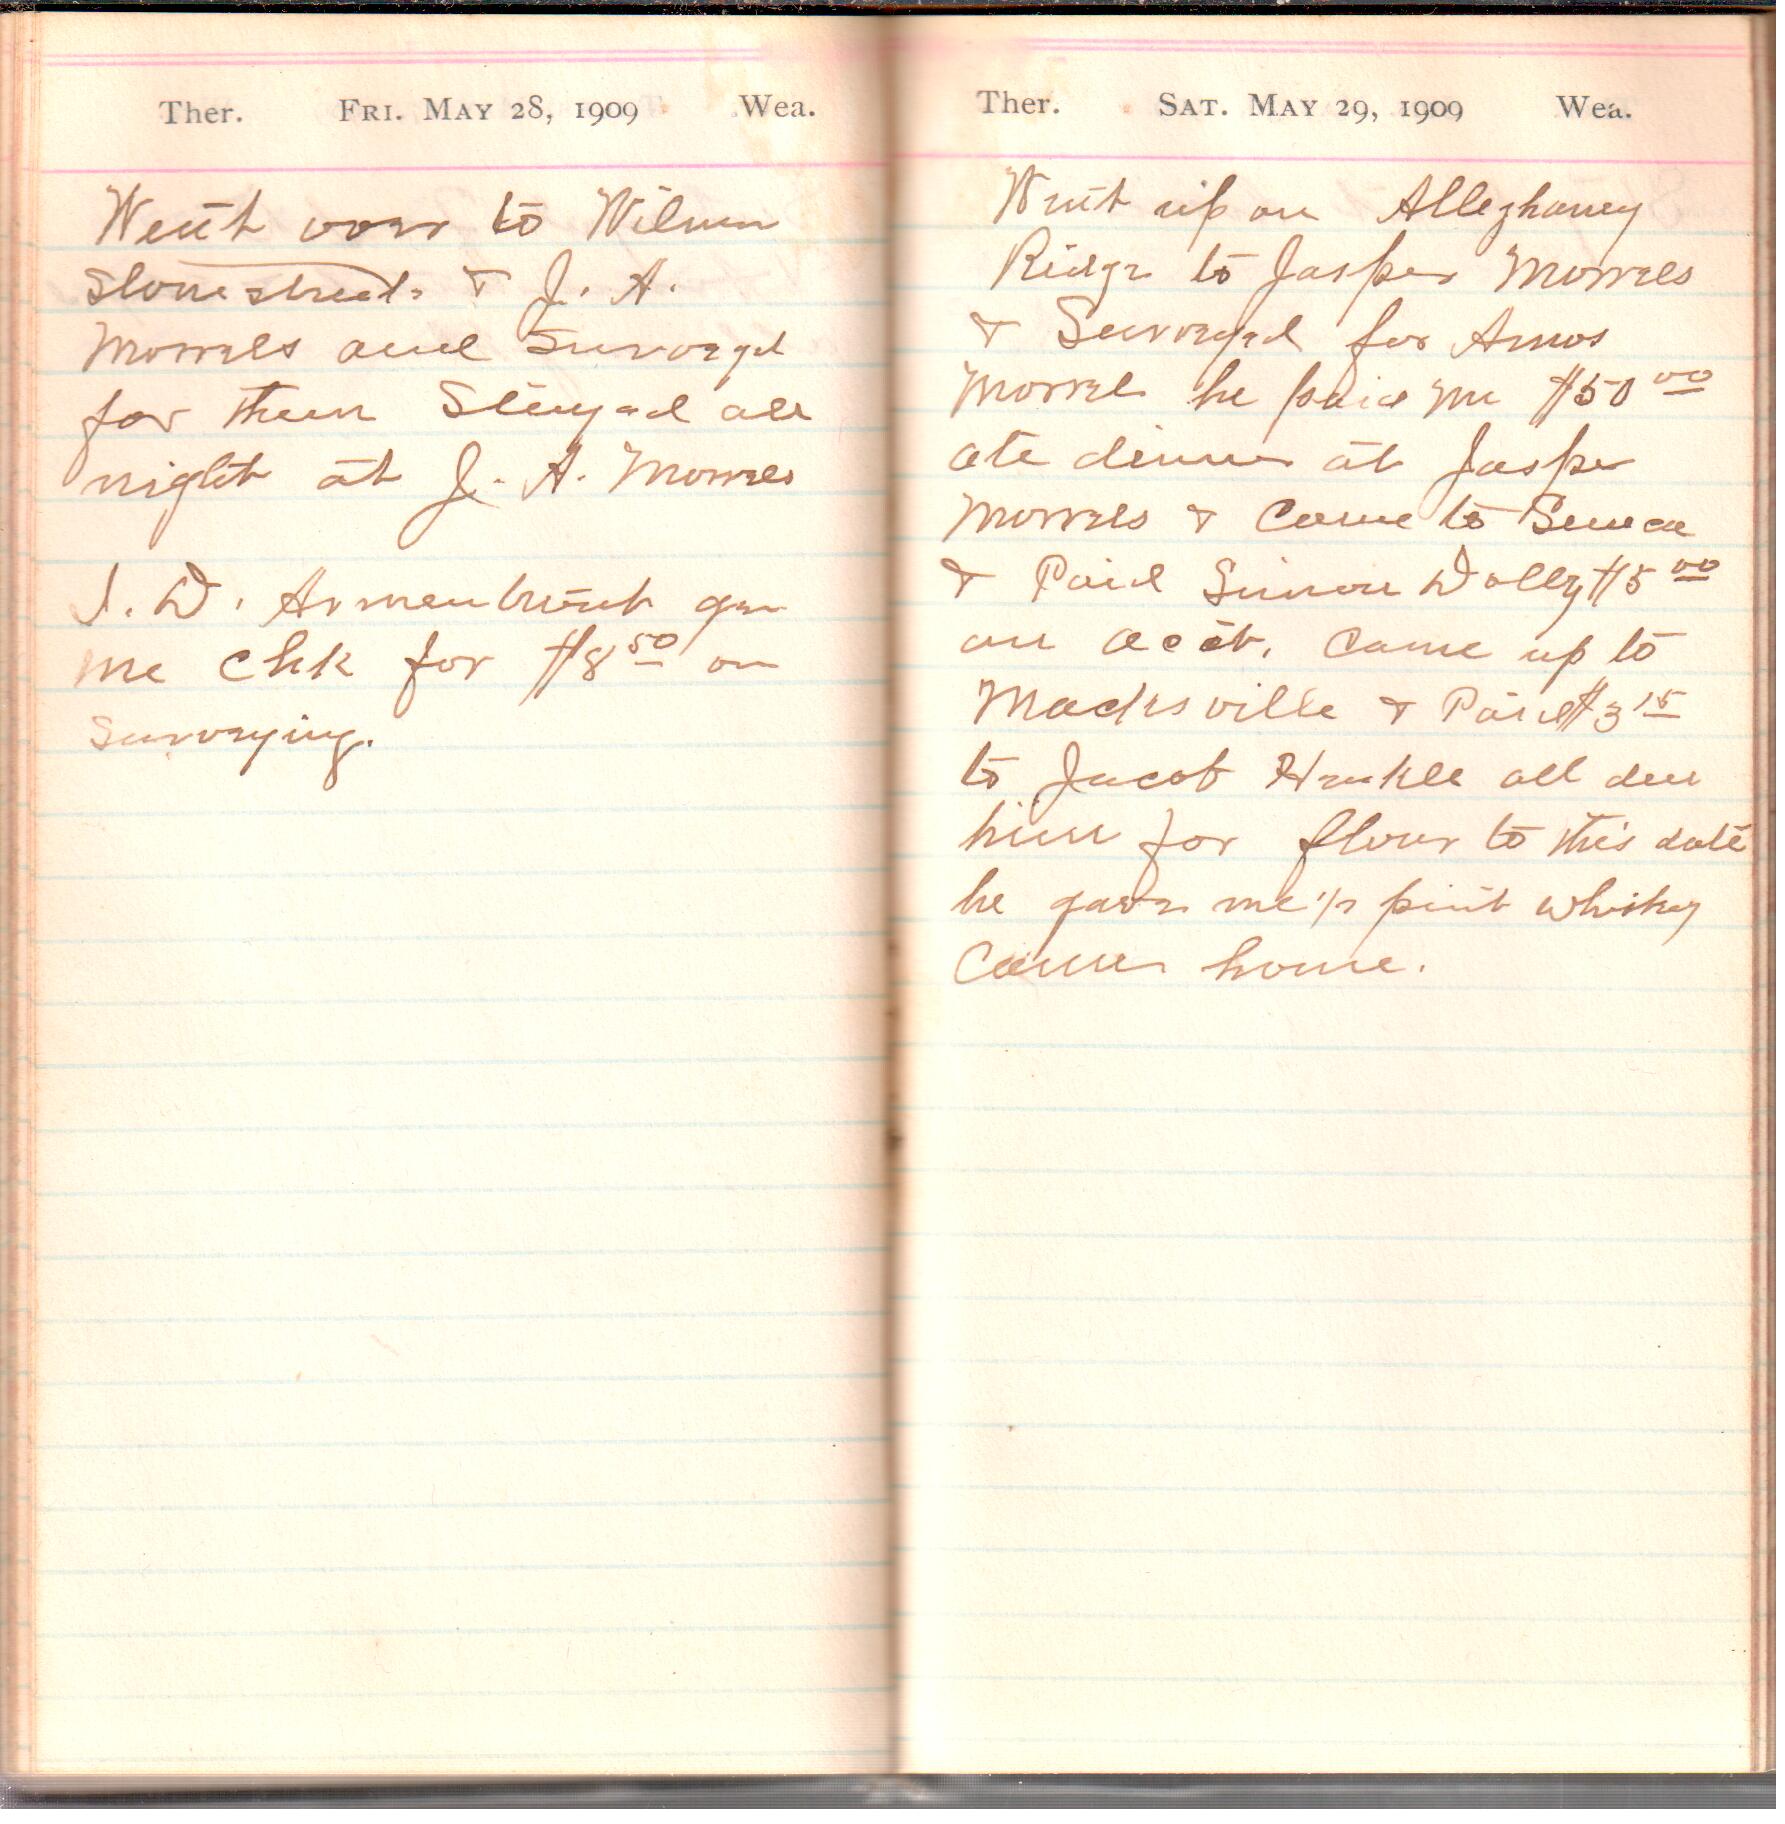 Ther. FRI. MAY 28, 1909 Wea.
Went over to Wilson
Stonestreets & J. A.
Morrels and Surveyed
for them Stayed all
night at J. A. Morrels
J. W. Armentrout gave
me Chk for $8 50 on
Surveying.
Ther. SAT. MAY 29, 1909 Wea.
Went up on Alleghaney
Ridge to Jasper Morrels
& Surveyed for Amos
Morrel he paid me $50 00
ate dinner at Jasper
Morrels & Came to Seneca
& Paid Simon Dolly $5 00
on acct. Came up to
Macksville & Paid $3 15
to Jacob Hinkle all due
him for flour to this date
he gave me 1/2 pint whiskey
Came home.